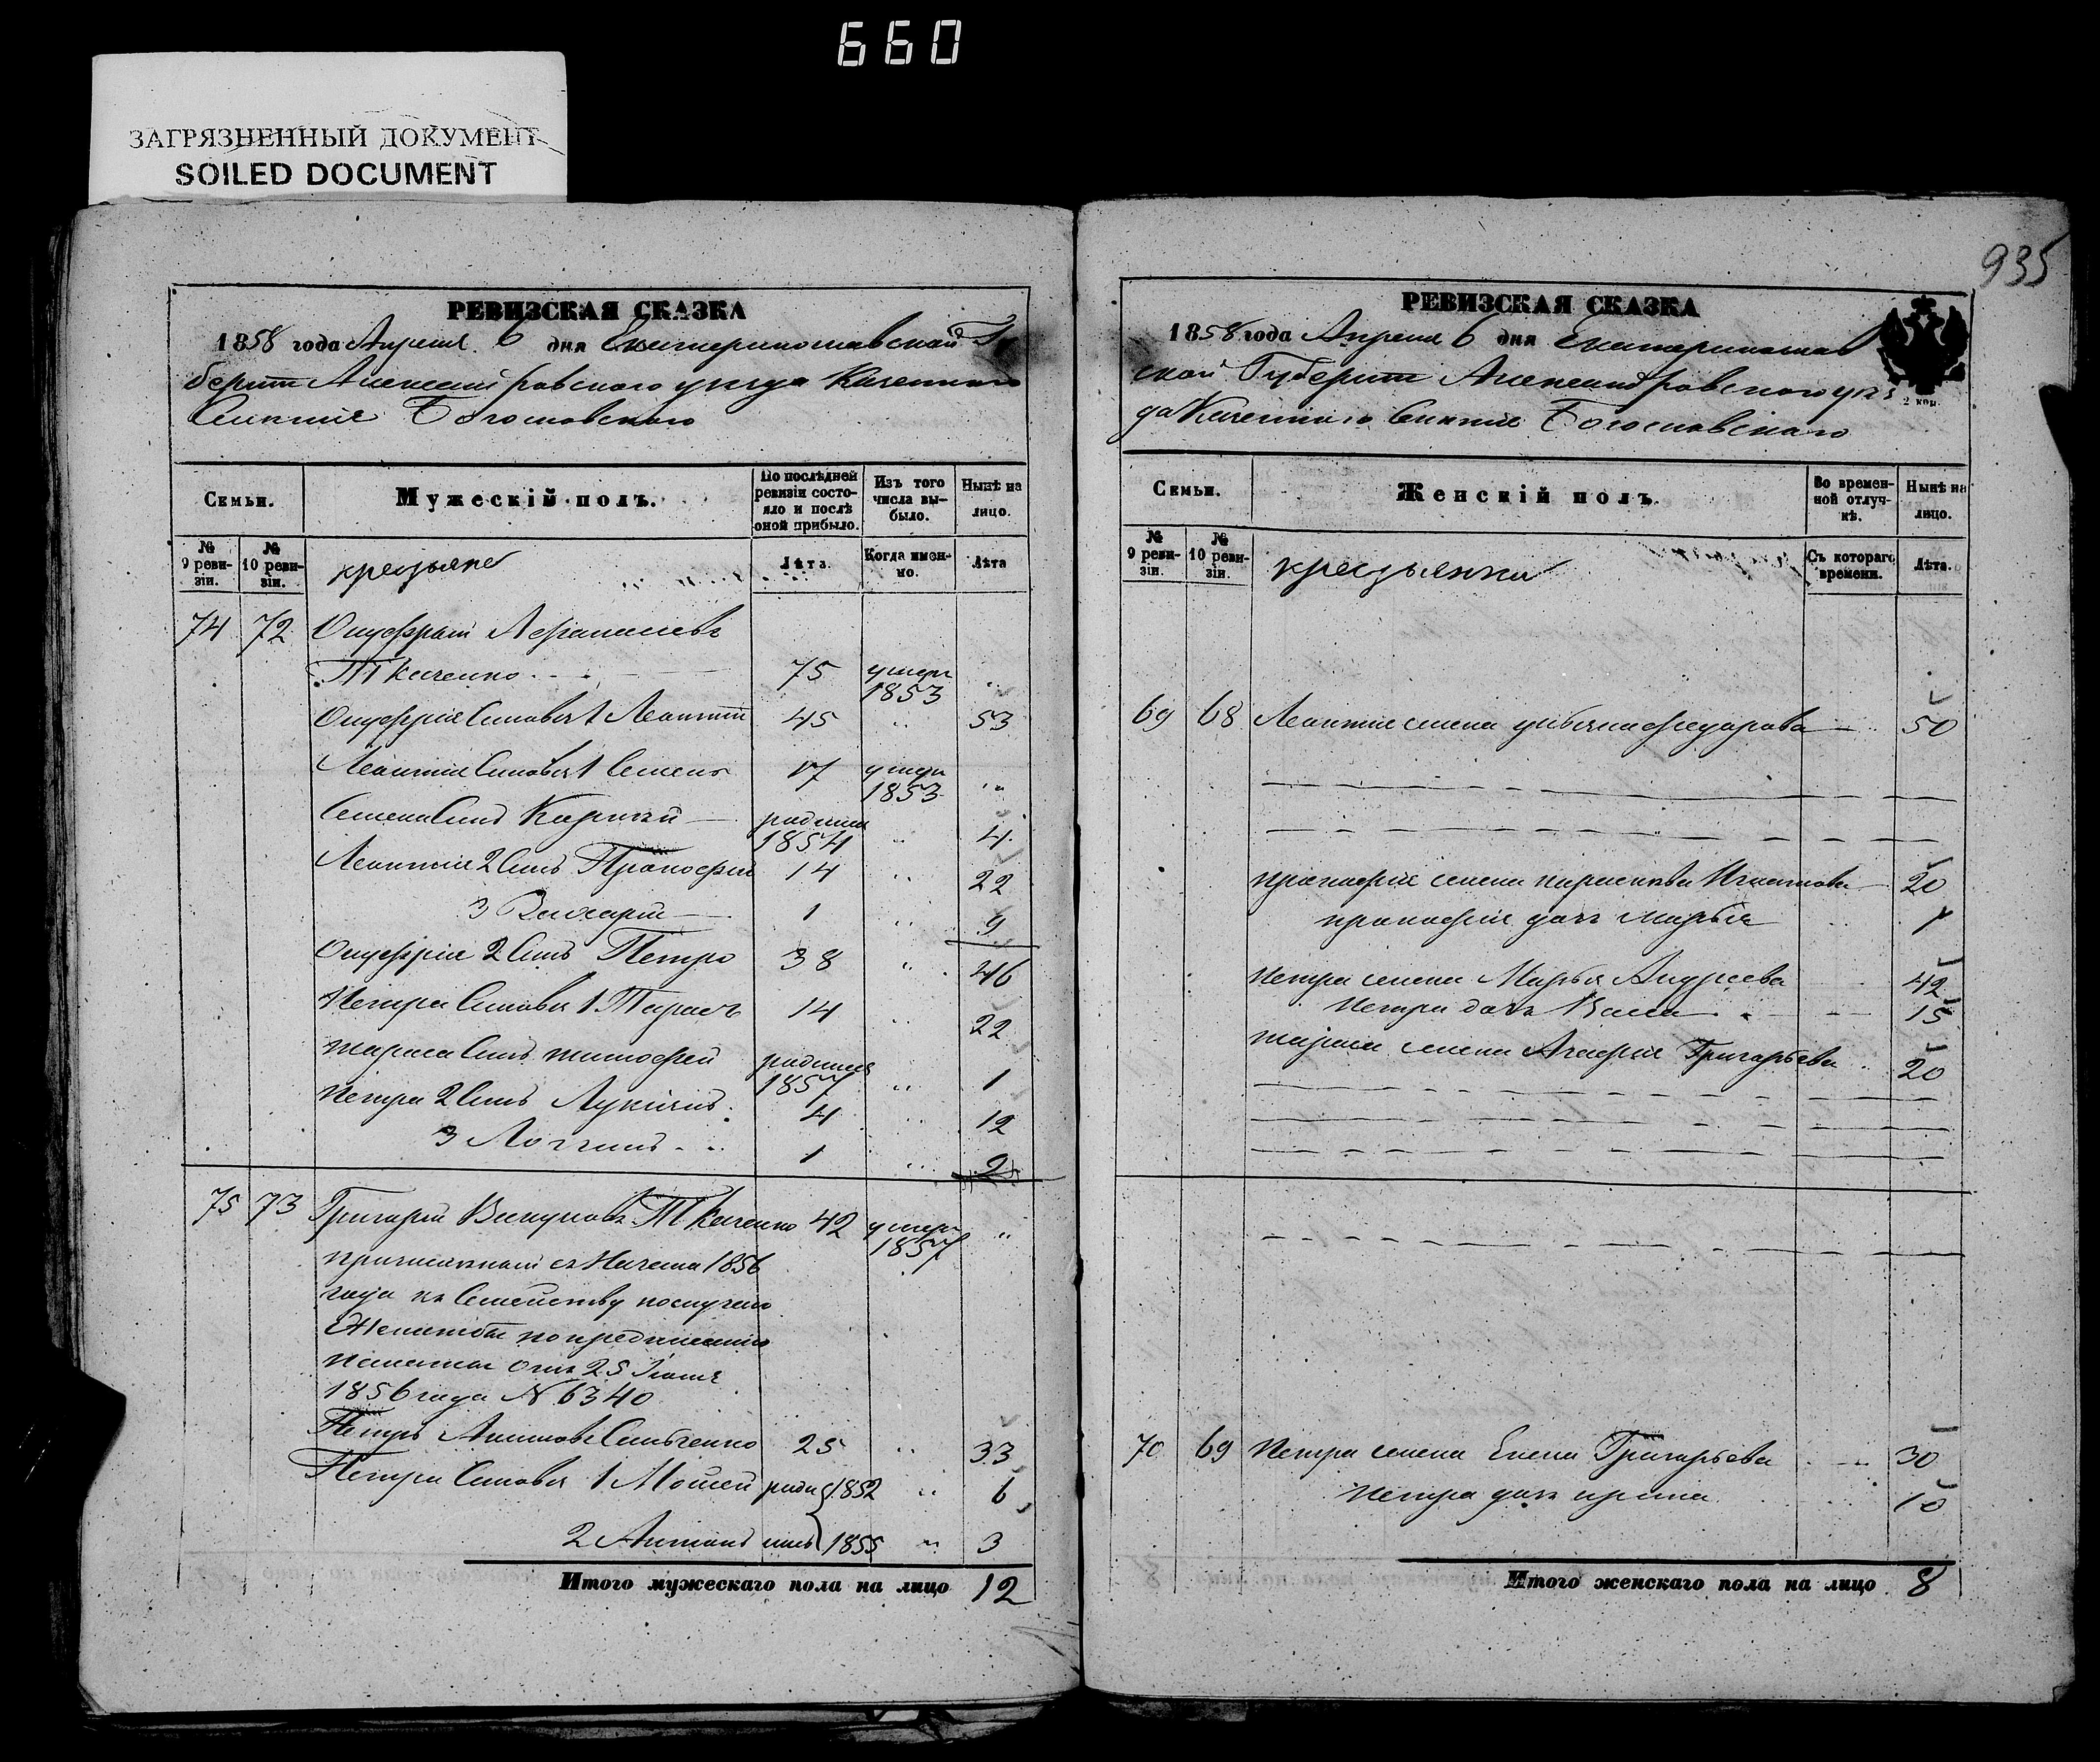 660
ЗАГРЯЗНЕННЫЙ ДОКУМЕНТ
SOILED DOCUMENT
РЕВИЗСКАЯ СКАЗКА
1858 года Апреля 6 дня Екатеринославской Гу
берніи Александровского уезда Казенного
Селения Богословского
Семьи.
Мужескій полъ.
По послѣдней ревизіи состояло и послѣ оной прибыло.
Изъ того числа выбыло.
Нынѣ на лицо.
№ 9 ревизіи.
№ 10 ревизіи.
крестьяне
Лѣта.
Когда именно.
Лѣта
74 72 Онуфрий Афанасиевъ
Ткаченко 75 умеръ 1853 "
Онуфрия Сыновья 1 Леонтий 45 " 53
Леонтия Сыновья 1 Семенъ 17 умеръ 1853 "
Семена Сынъ родился 1854 " 4
Леонтия 2 Сынъ Прокофий 14 " 22
3 1 " 9
Онуфрия 2 Сынъ Петро 38 " 46
Петра Сыновья 1 Тарасъ 14 " 22
Тараса Сынъ тимофей родился 1857 " 1
Петра 2 Сынъ Лукиянъ 4 " 12
3 Логгинъ 1 " 9
75 73 Григорий Ткаченко 42 умеръ 1857 "
причисленный съ Начала 1856
года къ Семейству послучаю
Женитьбы по предписанию
Палаты отъ 25 Июня
1856 года № 6340
Петръ 25 " 33
Петра Сыновья 1 Мойсей роди 1852 " 6
2 Антонъ лись 1855 " 3
Итого мужескаго пола на лицо 12
935
РЕВИЗСКАЯ СКАЗКА
1858 года Апреля 6 дня Екатеринослав
ской Губернии Александровского уез
да Казенного Селения Богословского
2 коп.
Семьи.
Женскій полъ.
Во временной отлучкѣ.
Нынѣ на лицо.
№ 9 ревизіи.
№ 10 ревизіи.
крестьянки
Съ котораго времени.
Лѣта.
69 68 Леонтия жена Федорова 50
прокофия жена параскева Игнатова 20
прокофия дочь марья 1
Петра жена Марья Андреева 42
Петра дочь 15
тараса жена Агафия Григорьева 20
70 69 Петра жена Елена Григорьева 30
Петра дочь ирина 10
Итого женскаго пола на лицо 8